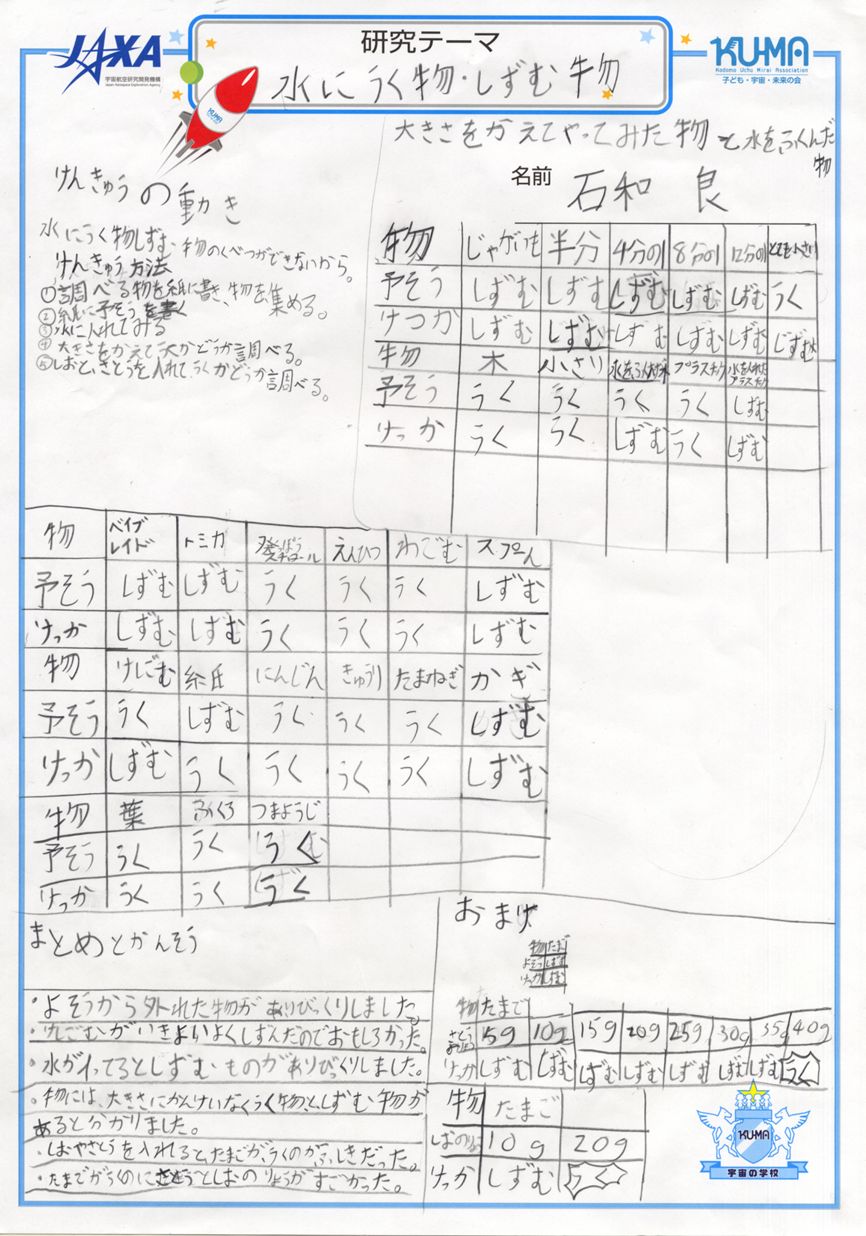 JAXA
宇宙航空研究開発機構
Japan Aerospace Exploration Agency
研究テーマ
水にうく物・しずむ物
KU-MA
Kodomo Uchu Mirai Association
子ども・宇宙・未来の会
KU-MA
大きさをかえてやってみた物と水をふくんだ物
名前 石和 良
けんきゅうの動き
水にうく物しずむ物のくべつができないから。
けんきゅう方法
①調べる物を紙に書き、物を集める。
②紙に予そうを書く
③水に入れてみる
④大きさをかえて
調べる。
⑤しおと、さとうを入れて、うくかどうか調べる。
物 じゃがいも 半分 4分の1 8分の1 12分の1 とても小さい
予そう しずむ しずむ しずむ しずむ しずむ うく
けつか しずむ しずむ しずむ しずむ しずむ しずむ
物 木 小さい プラスチック 水を入れたプラスチック
予そう うく うく うく うく しずむ
けっか うく うく しずむ うく しずむ
物 ベイブレイド トミカ 発ぽうスチロール えんぴつ わごむ スプーん
予そう しずむ しずむ うく うく うく しずむ
けっか しずむ しずむ うく うく うく しずむ
物 けしごむ 紙 にんじん きゅうり たまねぎ かぎ
予そう うく しずむ うく うく うく しずむ
けっか しずむ うく うく うく うく しずむ
物 葉 ふくろ つまようじ
予そう うく うく うく
けっか うく うく うく
まとめとかんそう
・よそうから外れた物がありびっくりしました。
・けしごむがいきよいよくしずんだのでおもしろかった。
・水が入ってるとしずむものがありびっくりしました。
・物には、大きさにかんけいなくうく物と、しずむ物が
あると分かりました。
・しおやさとうを入れると、たまごが、うくのが、ふしぎだった。
・たまごがうくのにさとうとしおのりょうがすごかった。
おまけ
物 たまご
よそう しずむ
けっか しずむ
物 たまご
さとうのりょう 5g 10g 15g 20g 25g 30g 35g 40g
けっか しずむ しずむ しずむ しずむ しずむ しずむ しずむ うく
物 たまご
しおのりょう 10g 20g
けっか しずむ うく
KU-MA
宇宙の学校